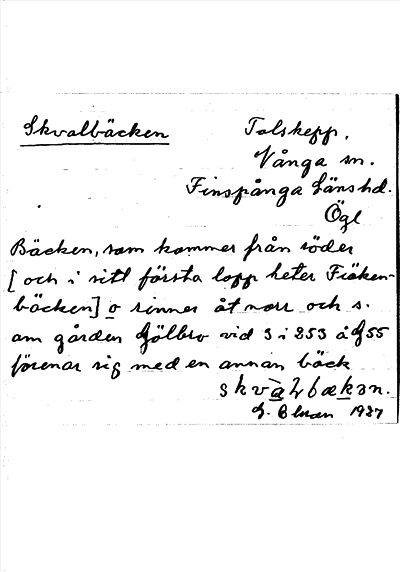 Skvalbäcken
Tolskepp,
Vånga sn.
Finspånga Länshd.
Ögl
Bäcken, som kommer från söder
[och i sitt första lopp heter Fräken-
bäcken] o rinner åt norr och s.
om gården Gölbro vid 3 i 253 å G55
förenar sig med en annan bäck
skvàlbækən.
1937